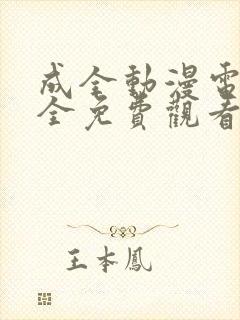 成全動漫電
全免費觀看
王本鳳